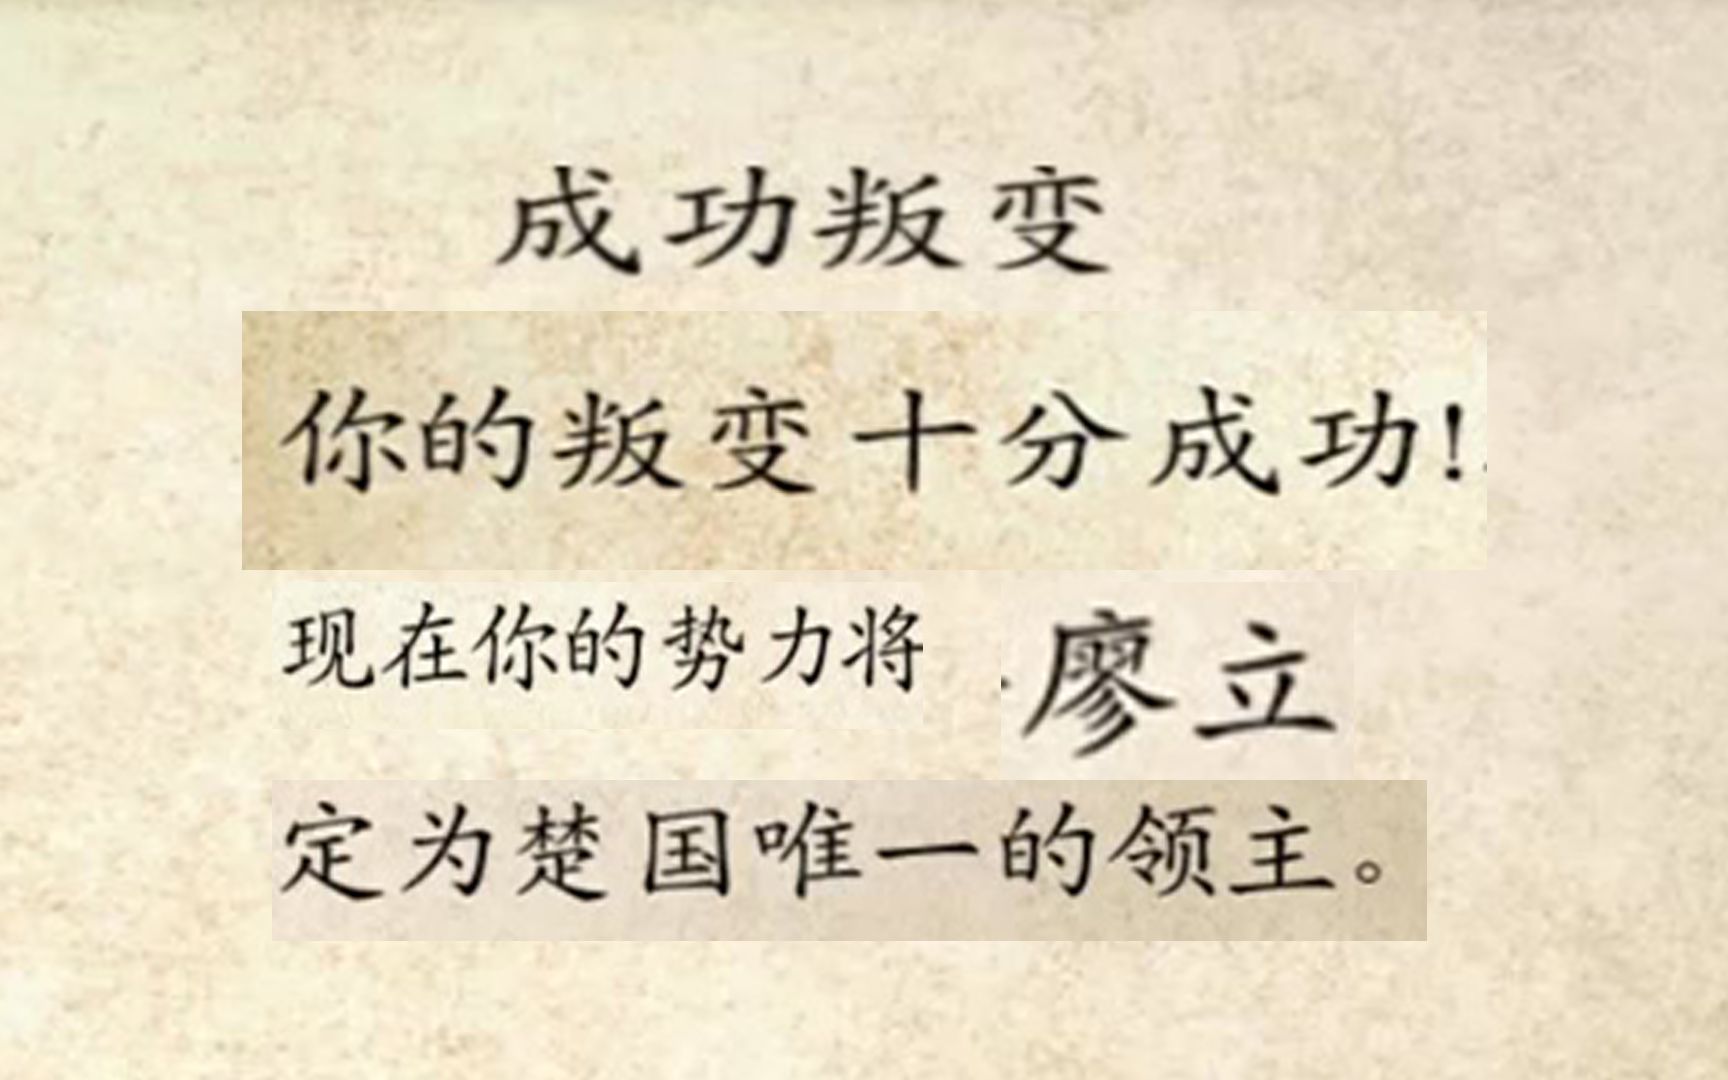 成功叛变
你的叛变十分成功!
现在你的势力将 廖立
定为楚国唯一的领主。